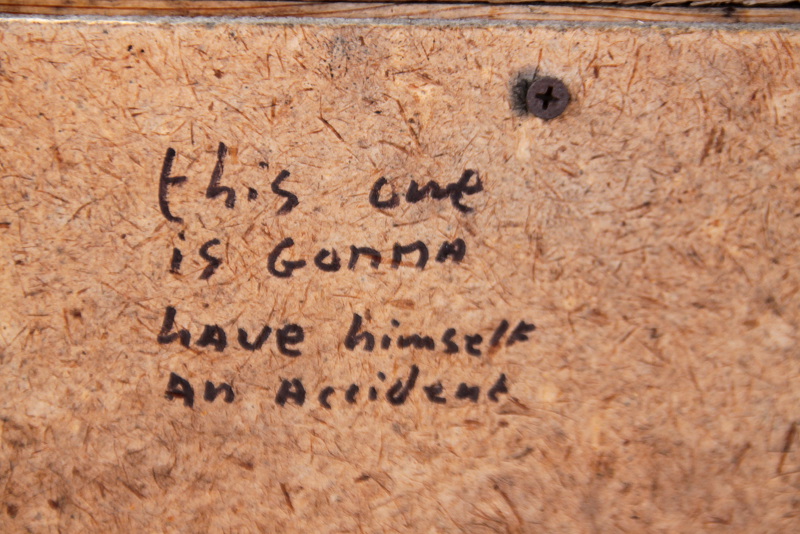 this one
is GonnA
hAve himself
An Accident